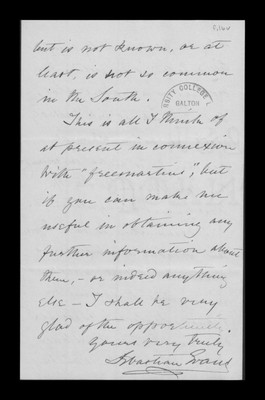 but is not known, or at
least, is not so common
in the South.
This is all I think of
at present in connexion
with "freemartins", but
if you can make me
useful in obtaining any
further information about
them, – or indeed anything
else – I shall be very
glad of the opportunity.
Yours very truly
Sebastian Evans
SITY COLLEGE L
GALTON